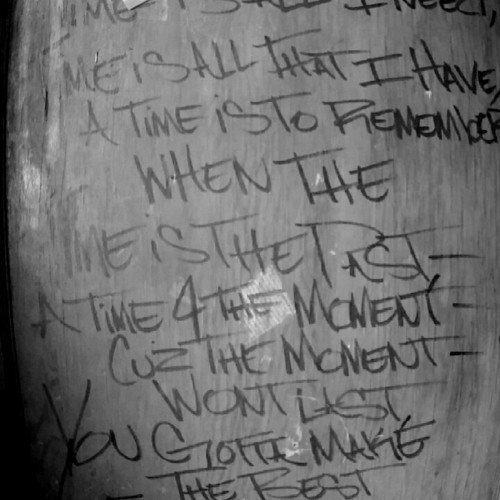 TIME IS ALL I NEED,
TIME IS ALL THAT I HAVE,
A TIME IS TO REMEMBER
WHEN THE
TIME IS THE PAST-
A TIME 4 THE MOMENT-
CUZ THE MOMENT-
WONT LAST
YOU GOTTA MAKE
- THE BEST